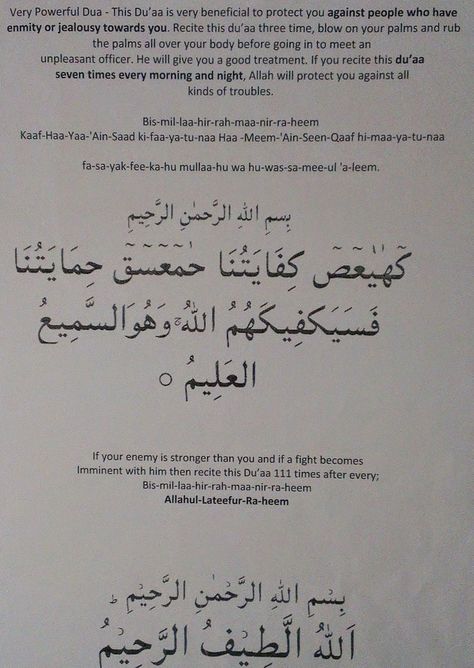 Very Powerful Dua - This Du'aa is very beneficial to protect you against people who have
enmity or jealousy towards you. Recite this du'aa three time, blow on your palms and rub
the palms all over your body before going in to meet an
unpleasant officer. He will give you a good treatment. If you recite this du'aa
seven times every morning and night, Allah will protect you against all
kinds of troubles.
Bis-mil-laa-hir-rah-maa-nir-ra-heem
Kaaf-Haa-Yaa-'Ain-Saad ki-faa-ya-tu-naa Haa -Meem-'Ain-Seen-Qaaf hi-maa-ya-tu-naa
fa-sa-yak-fee-ka-hu mullaa-hu wa hu-was-sa-mee-ul 'a-leem.
بِسمِ اللهِ الرَّحمٰنِ الرَّحِيْمِ
كٓهٰيٰعٓصٓ كِفَايَتُنَا حٰمٓعٓسٓقٓ حِمَايَتُنَا
فَسَيَكفِيكَهُمُ اللهُ ۚ وَهُوَالسَّمِيعُ
العَلِيمُ ○
If your enemy is stronger than you and if a fight becomes
Imminent with him then recite this Du'aa 111 times after every;
Bis-mil-laa-hir-rah-maa-nir-ra-heem
Allahul-Lateefur-Ra-heem
بِسْمِ اللهِ الرَّحْمٰنِ الرَّحِيْمِ ؕ
اَللهُ الَّطِيْفُ الرَّحِيْمُ